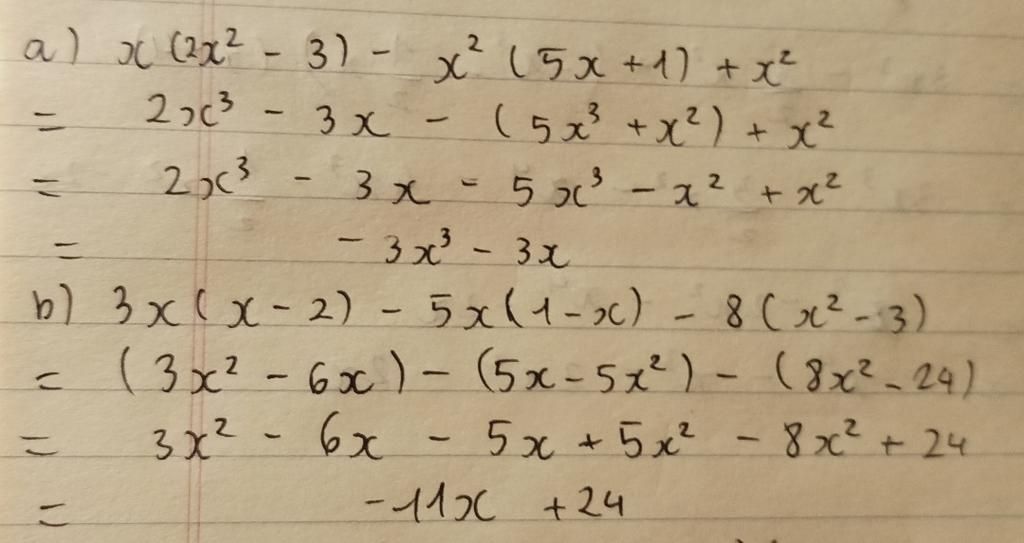 a) x(2x² - 3) - x² (5x + 1) + x²
= 2x³ - 3x - (5x³ + x²) + x²
= 2x³ - 3x - 5x³ - x² + x²
= - 3x³ - 3x
b) 3x(x - 2) - 5x(1 - x) - 8(x² - 3)
= (3x² - 6x) - (5x - 5x²) - (8x² - 24)
= 3x² - 6x - 5x + 5x² - 8x² + 24
= -11x + 24